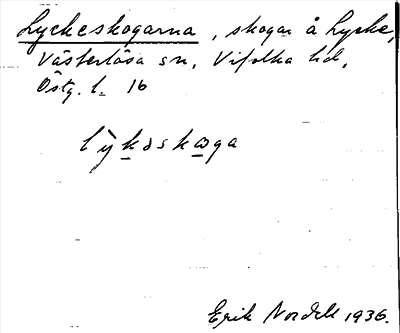 Lyckeskogarna, skogar å Lycke,
Västerlösa sn, Vifolka hd,
Östg. l. 16
lykəskωga
Erik Nordell 1936.